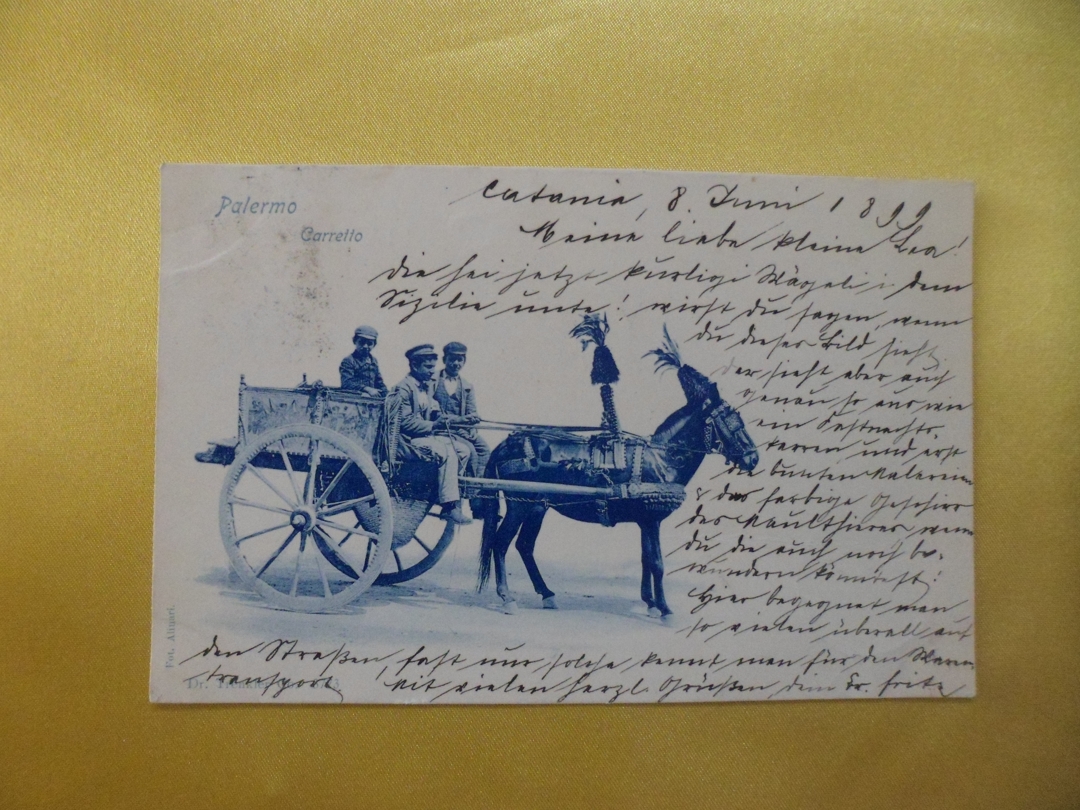 Palermo
Carretto
Catania, 8. Juni 1899
Meine liebe kleine Lea!
die sei jetzt kurligi Wägeli i dem
Sizilie unte! wirst du sagen, wenn
du dieses Bild siehst,
der sieht aber auch
genau so aus wie
ein Fastnachts-
karren und erst
die bunten Malereien
& das farbige Geschirr
des Maulthieres, wenn
du die auch noch be-
wundern könntest!
Hier begegnet man
so vielen überall auf
den Straßen, fast nur solche kennt man für den Waren
transport. Mit vielen herzl. Grüßen, dein Br. Fritz
Fot. Alinari.
Dr.